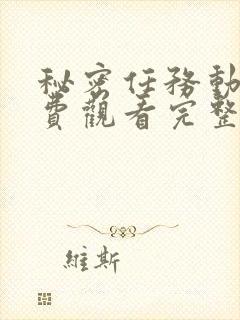 秘密任務動
費觀看完整
維斯